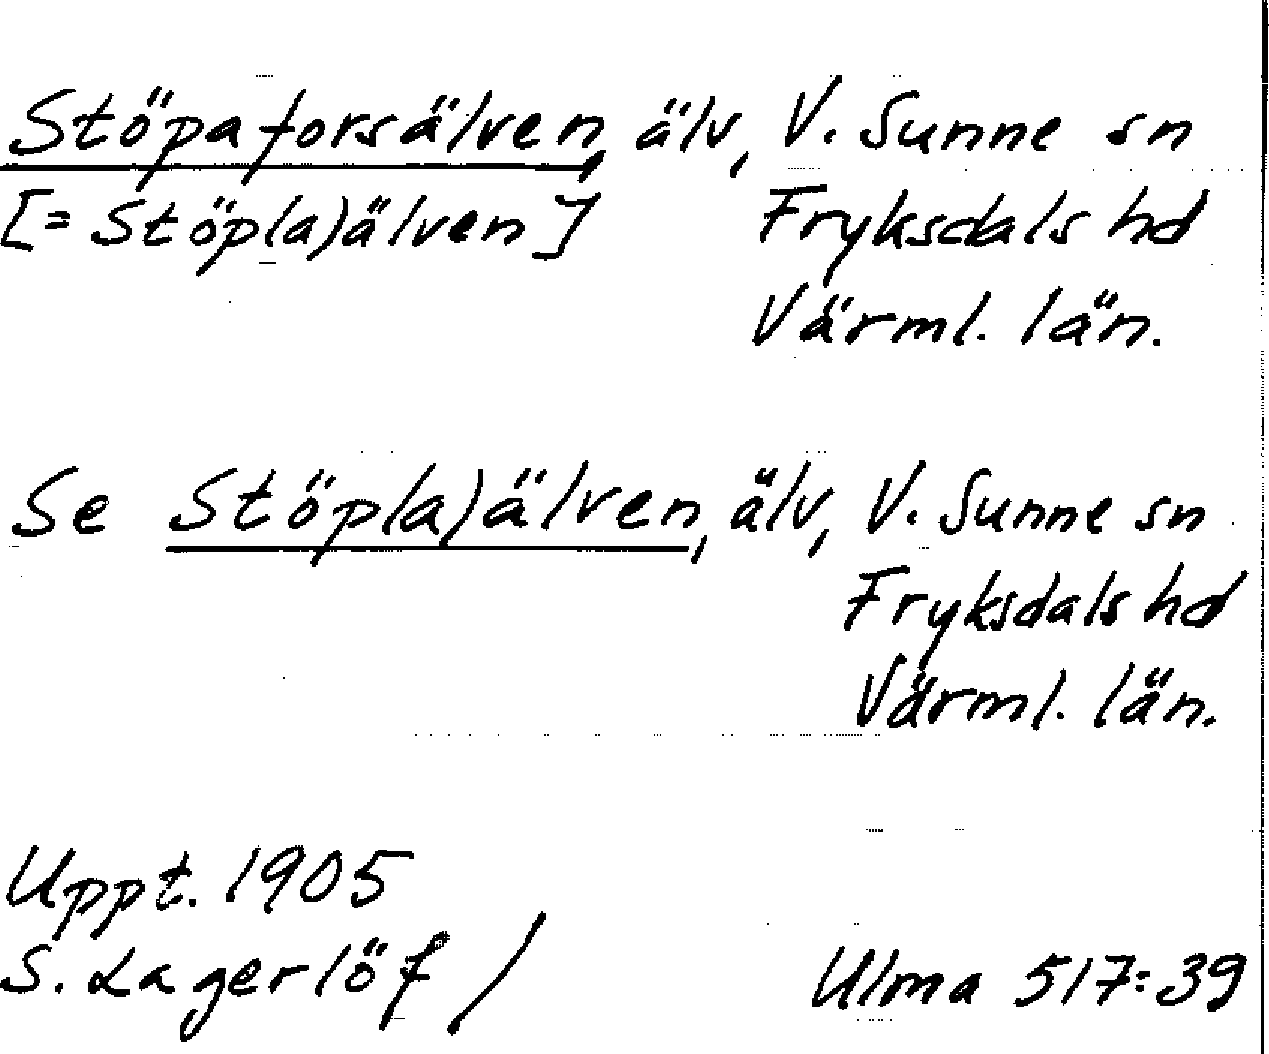 Stöpaforsälven, älv, V. Sunne sn
[= Stöp(a)älven] Fryksdals hd
Värml. län.
Se Stöp(a)älven, älv, V. Sunne sn
Fryksdals hd
Värml. län.
Uppt. 1905
S. Lagerlöf / Ulma 517:39